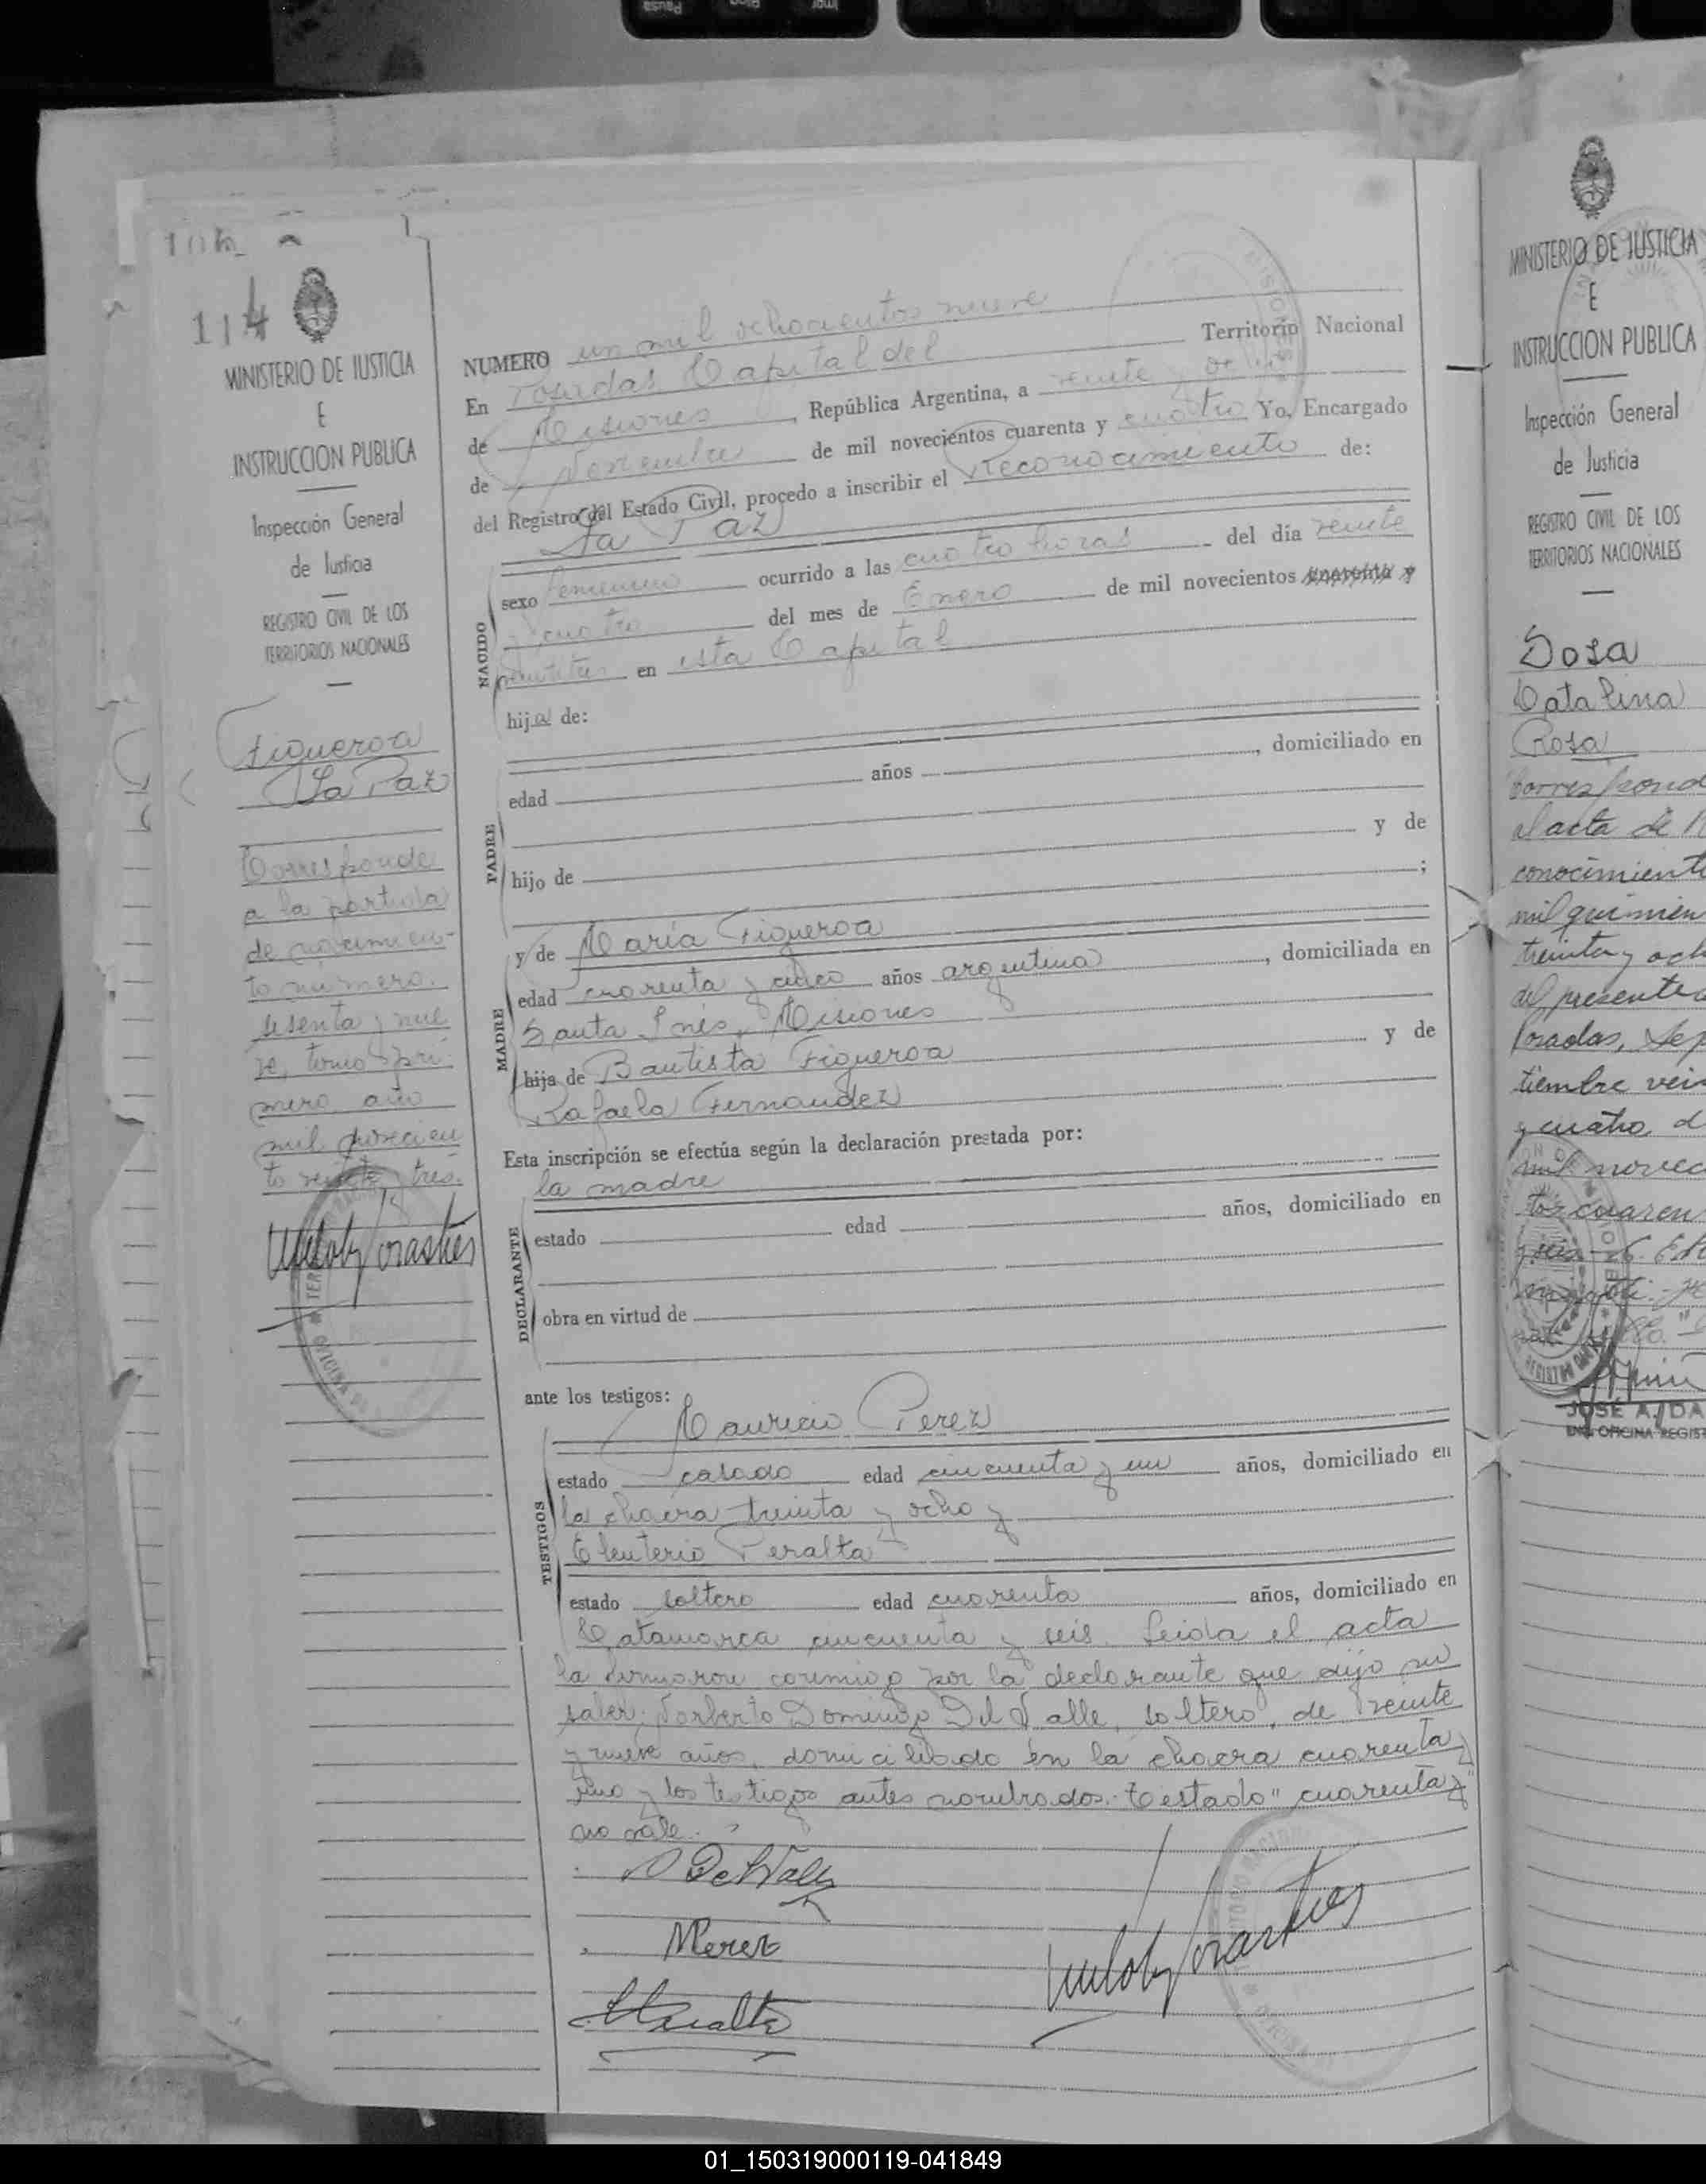 Pausa
114
MINISTERIO DE JUSTICIA
E
INSTRUCCION PUBLICA
Inspección General
de Justicia
REGISTRO CIVIL DE LOS
TERRITORIOS NACIONALES
Figueroa
La Paz
Corresponde
a la partida
de nacimien-
to número
sesenta y nue
ve, tomo pri
mero año
mil novecien
to veinte y tres.
NUMERO un mil ochocientos nueve
En Posadas Capital del Territorio Nacional
de Misiones, República Argentina, a veinte y
de Noviembre de mil novecientos cuarenta y cuatro Yo, Encargado
del Registro del Estado Civil, procedo a inscribir el Reconocimiento de:
La Paz
NACIDO
sexo femenino ocurrido a las cuatro horas del día veinte
y cuatro del mes de Enero de mil novecientos cuarenta y
veintitres en esta Capital
hija de:
PADRE
edad años , domiciliado en
hijo de y de
;
MADRE
y de María Figueroa
edad cuarenta y cinco años argentina, domiciliada en
Santa Inés, Misiones
hija de Bautista Figueroa y de
Rafaela Fernandez
Esta inscripción se efectúa según la declaración prestada por:
la madre
DECLARANTE
estado edad años, domiciliado en
obra en virtud de
ante los testigos:
Mauricio Perez
TESTIGOS
estado casado edad cincuenta y un años, domiciliado en
la chacra treinta y ocho y
Eleuterio Peralta
estado soltero edad cuarenta años, domiciliado en
Catamarca cincuenta y seis. Leida el acta
la firmaron conmigo por la declarante que dijo no
saber, Norberto Domingo Del Valle, soltero, de veinte
y nueve años, domiciliado en la chacra cuarenta y
uno y los testigos antes nombrados.- Testado "cuarenta y"
no vale.-
N DelValle
MPerez
EPeralta
MINISTERIO DE JUSTICIA
E
INSTRUCCION PUBLICA
Inspección General
de Justicia
REGISTRO CIVIL DE LOS
TERRITORIOS NACIONALES
Sosa
Catalina
Rosa
Correspond
al acta de R
conocimient
mil quinien
treinta y och
del presente
Posadas, Sep
tiembre vei
y cuatro, d
mil novec
tos cuaren
JOSÉ A. DA
ENC. OFICINA REGIST
01_150319000119-041849